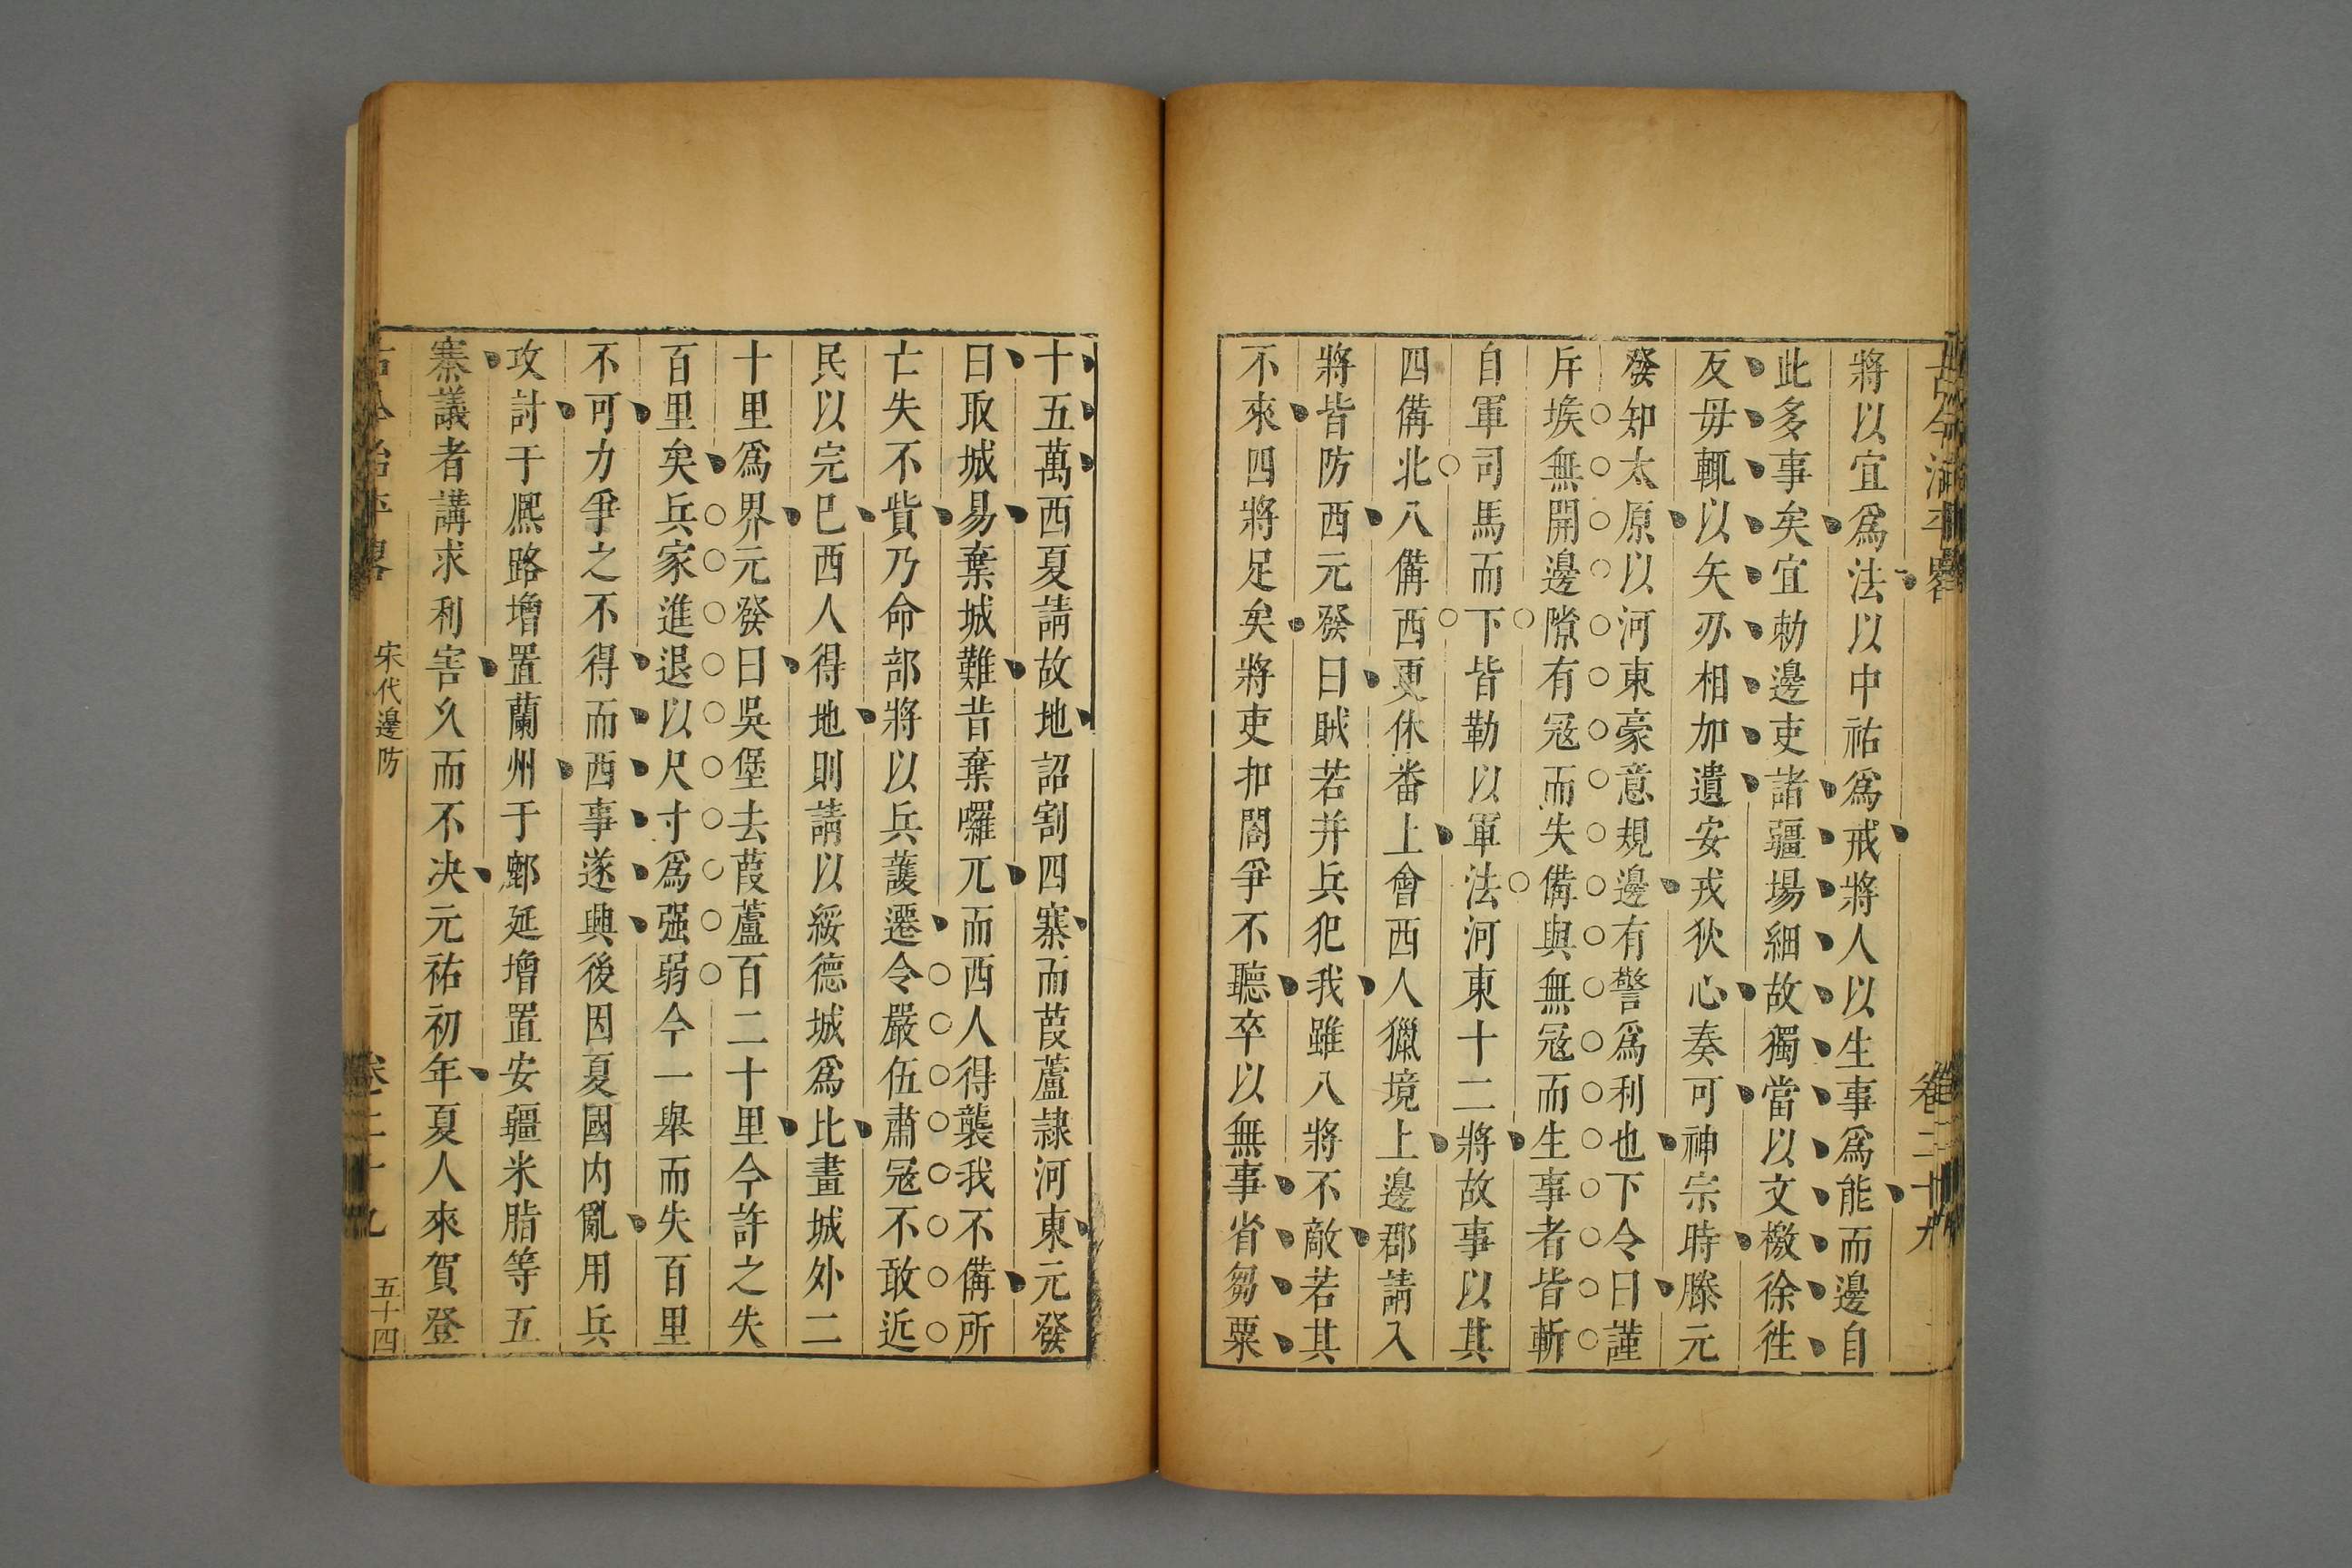 古今治平畧
卷二十九
將以宜爲法以中祐爲戒將人以生事爲能而邊自
此多事矣宜勅邊吏諸疆場細故獨當以文檄徐徃
反毋輒以矢刃相加遺安戎狄心奏可神宗時滕元
發知太原以河東豪意規邊有警爲利也下令曰謹
斥堠無開邊隙有冦而失備與無冦而生事者皆斬
自軍司馬而下皆勒以軍法河東十二將故事以其
四備北八備西更休番上會西人獵境上邊郡請入
將皆防西元發曰賊若并兵犯我雖八將不敵若其
不來四將足矣將吏扣閤爭不聽卒以無事省芻粟
十五萬西夏請故地詔割四寨而葭蘆隷河東元發
曰取城易棄城難昔棄囉兀而西人得襲我不備所
亡失不貲乃命部將以兵護遷令嚴伍肅冦不敢近
民以完巳西人得地則請以綏德城爲比畫城外二
十里爲界元發曰吳堡去葭蘆百二十里今許之失
百里矣兵家進退以尺寸爲强弱今一舉而失百里
不可力爭之不得而西事遂興後因夏國内亂用兵
攻討于熈路增置蘭州于鄜延增置安疆米脂等五
寨議者講求利害久而不决元祐初年夏人來賀登
古今治平畧
宋代邊防
卷二十九
五十四